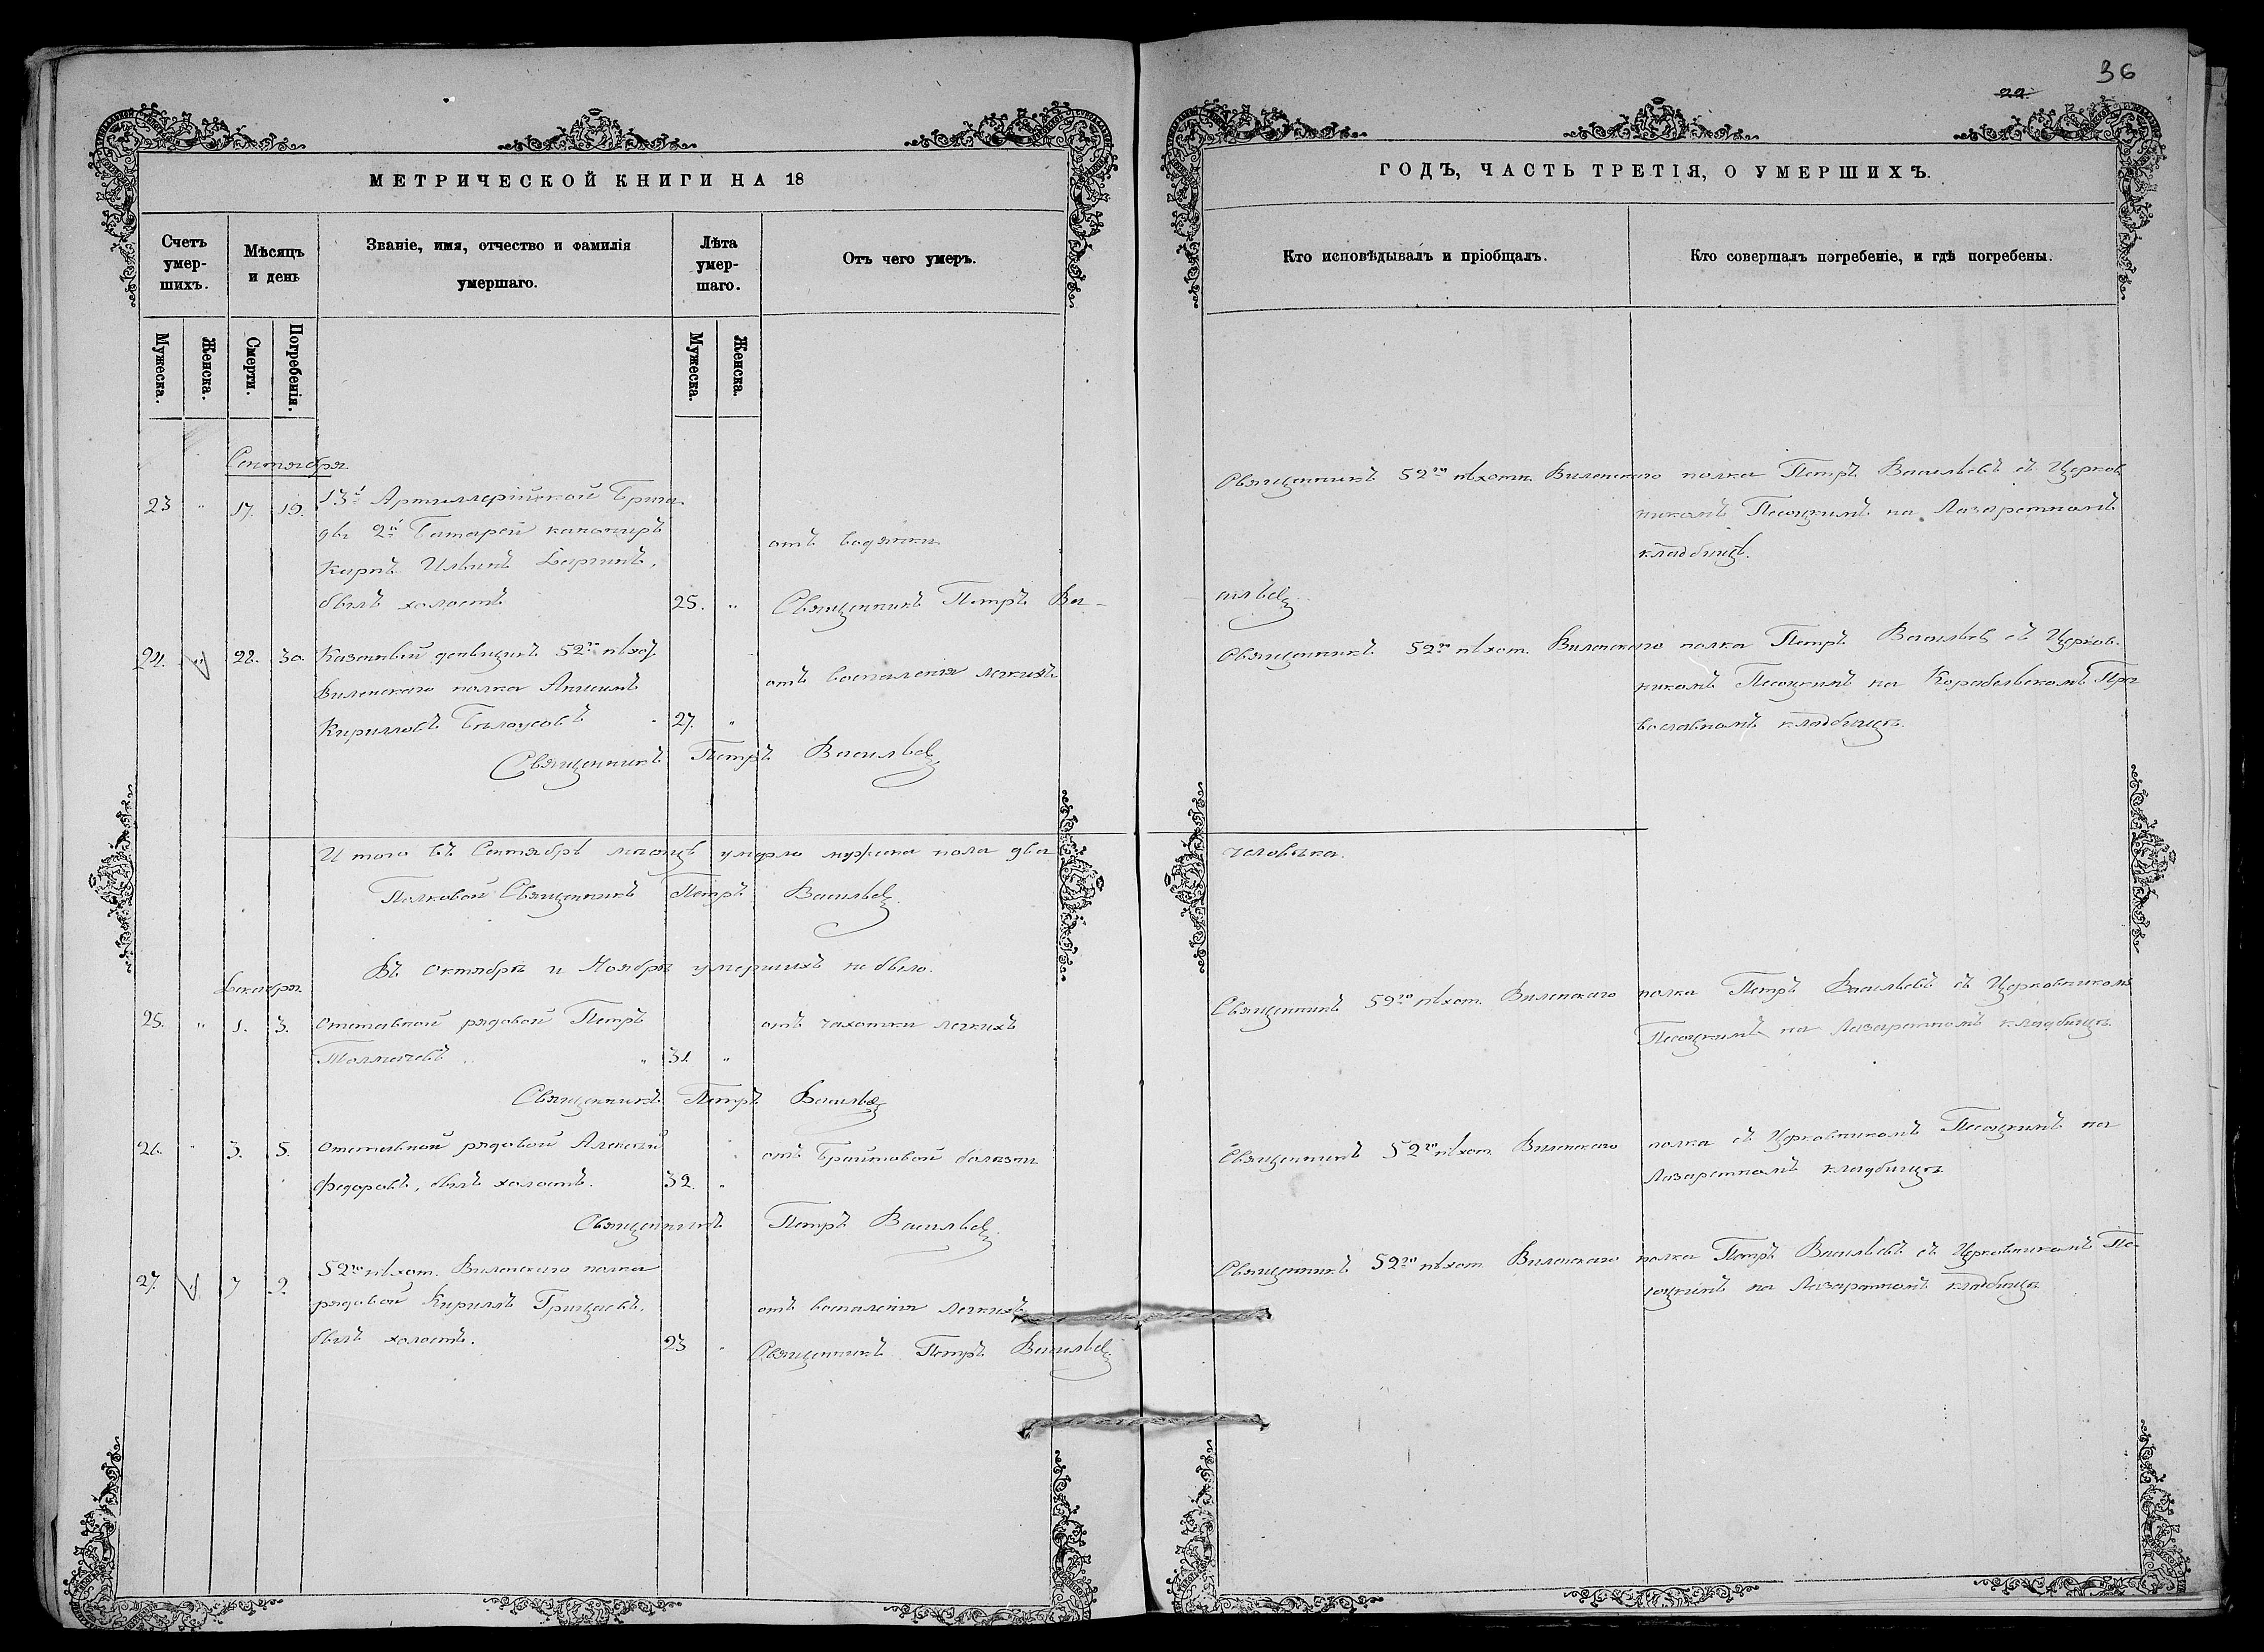 36
22
МЕТРИЧЕСКОЙ КНИГИ НА 18
ГОДЪ, ЧАСТЬ ТРЕТІЯ, О УМЕРШИХЪ.
Счетъ умер-шихъ.
Мѣсяцъ и день
Званіе, имя, отчество и фамилія умершаго.
Лѣта умер-шаго.
Отъ чего умеръ.
Кто исповѣдывалъ и пріобщалъ.
Кто совершалъ погребеніе, и гдѣ погребены.
Мужеска.
Женска.
Смерти.
Погребенія.
Мужеска.
Женска.
Сентября
23 " 17. 19. 13й Артиллерійской Брига
ды 2й Батареи канониръ
Карпъ Ильинъ
былъ холостъ 25. "
отъ водянки
Священникъ Петръ Ва-
сильевъ
Священникъ 52го пѣхотн. Виленскаго полка Петръ Васильевъ съ Церков
никомъ Песоцкимъ на Лазаретномъ
кладбищѣ.
24. " 28. 30. Казенный деньщикъ 52го пѣхот.
Виленскаго полка
Кирилловъ Бѣлоусовъ 27. "
отъ воспаленія легкихъ
Священникъ Петръ Васильевъ
Священникъ 52го пѣхот. Виленскаго полка Петръ Васильевъ съ Церков-
никомъ Песоцкимъ на Корабельномъ Пра
вославномъ кладбищѣ.
И того въ Сентябрѣ мѣсяцѣ умерло мужеска пола два
человѣка.
Полковой Священникъ Петръ Васильевъ
Въ Октябрѣ и Ноябрѣ умершихъ не было.
Декабря
25. " 1. 3. Отставной рядовой Петръ
Толмачевъ " 31. "
отъ чахотки легкихъ
Священникъ Петръ Васильевъ
Священникъ 52го пѣхот. Виленскаго полка Петръ Васильевъ съ Церковникомъ
Песоцкимъ на Лазаретномъ кладбищѣ.
26. " 3. 5. Отставной рядовой Алексѣй
Федоровъ, былъ холостъ. 32. "
отъ Брайтовой болѣзни
Священникъ Петръ Васильевъ
Священникъ 52го пѣхот. Виленскаго полка съ Церковникомъ Песоцкимъ на
Лазаретномъ кладбищѣ
27. 7 9. 52го пѣхот. Виленскаго полка
рядовой Кириллъ
былъ холостъ. 23 "
отъ воспаленія легкихъ
Священникъ Петръ Васильевъ
Священникъ 52го пѣхот. Виленскаго полка Петръ Васильевъ съ Церковникомъ Пе-
соцкимъ на Лазаретномъ кладбищѣ